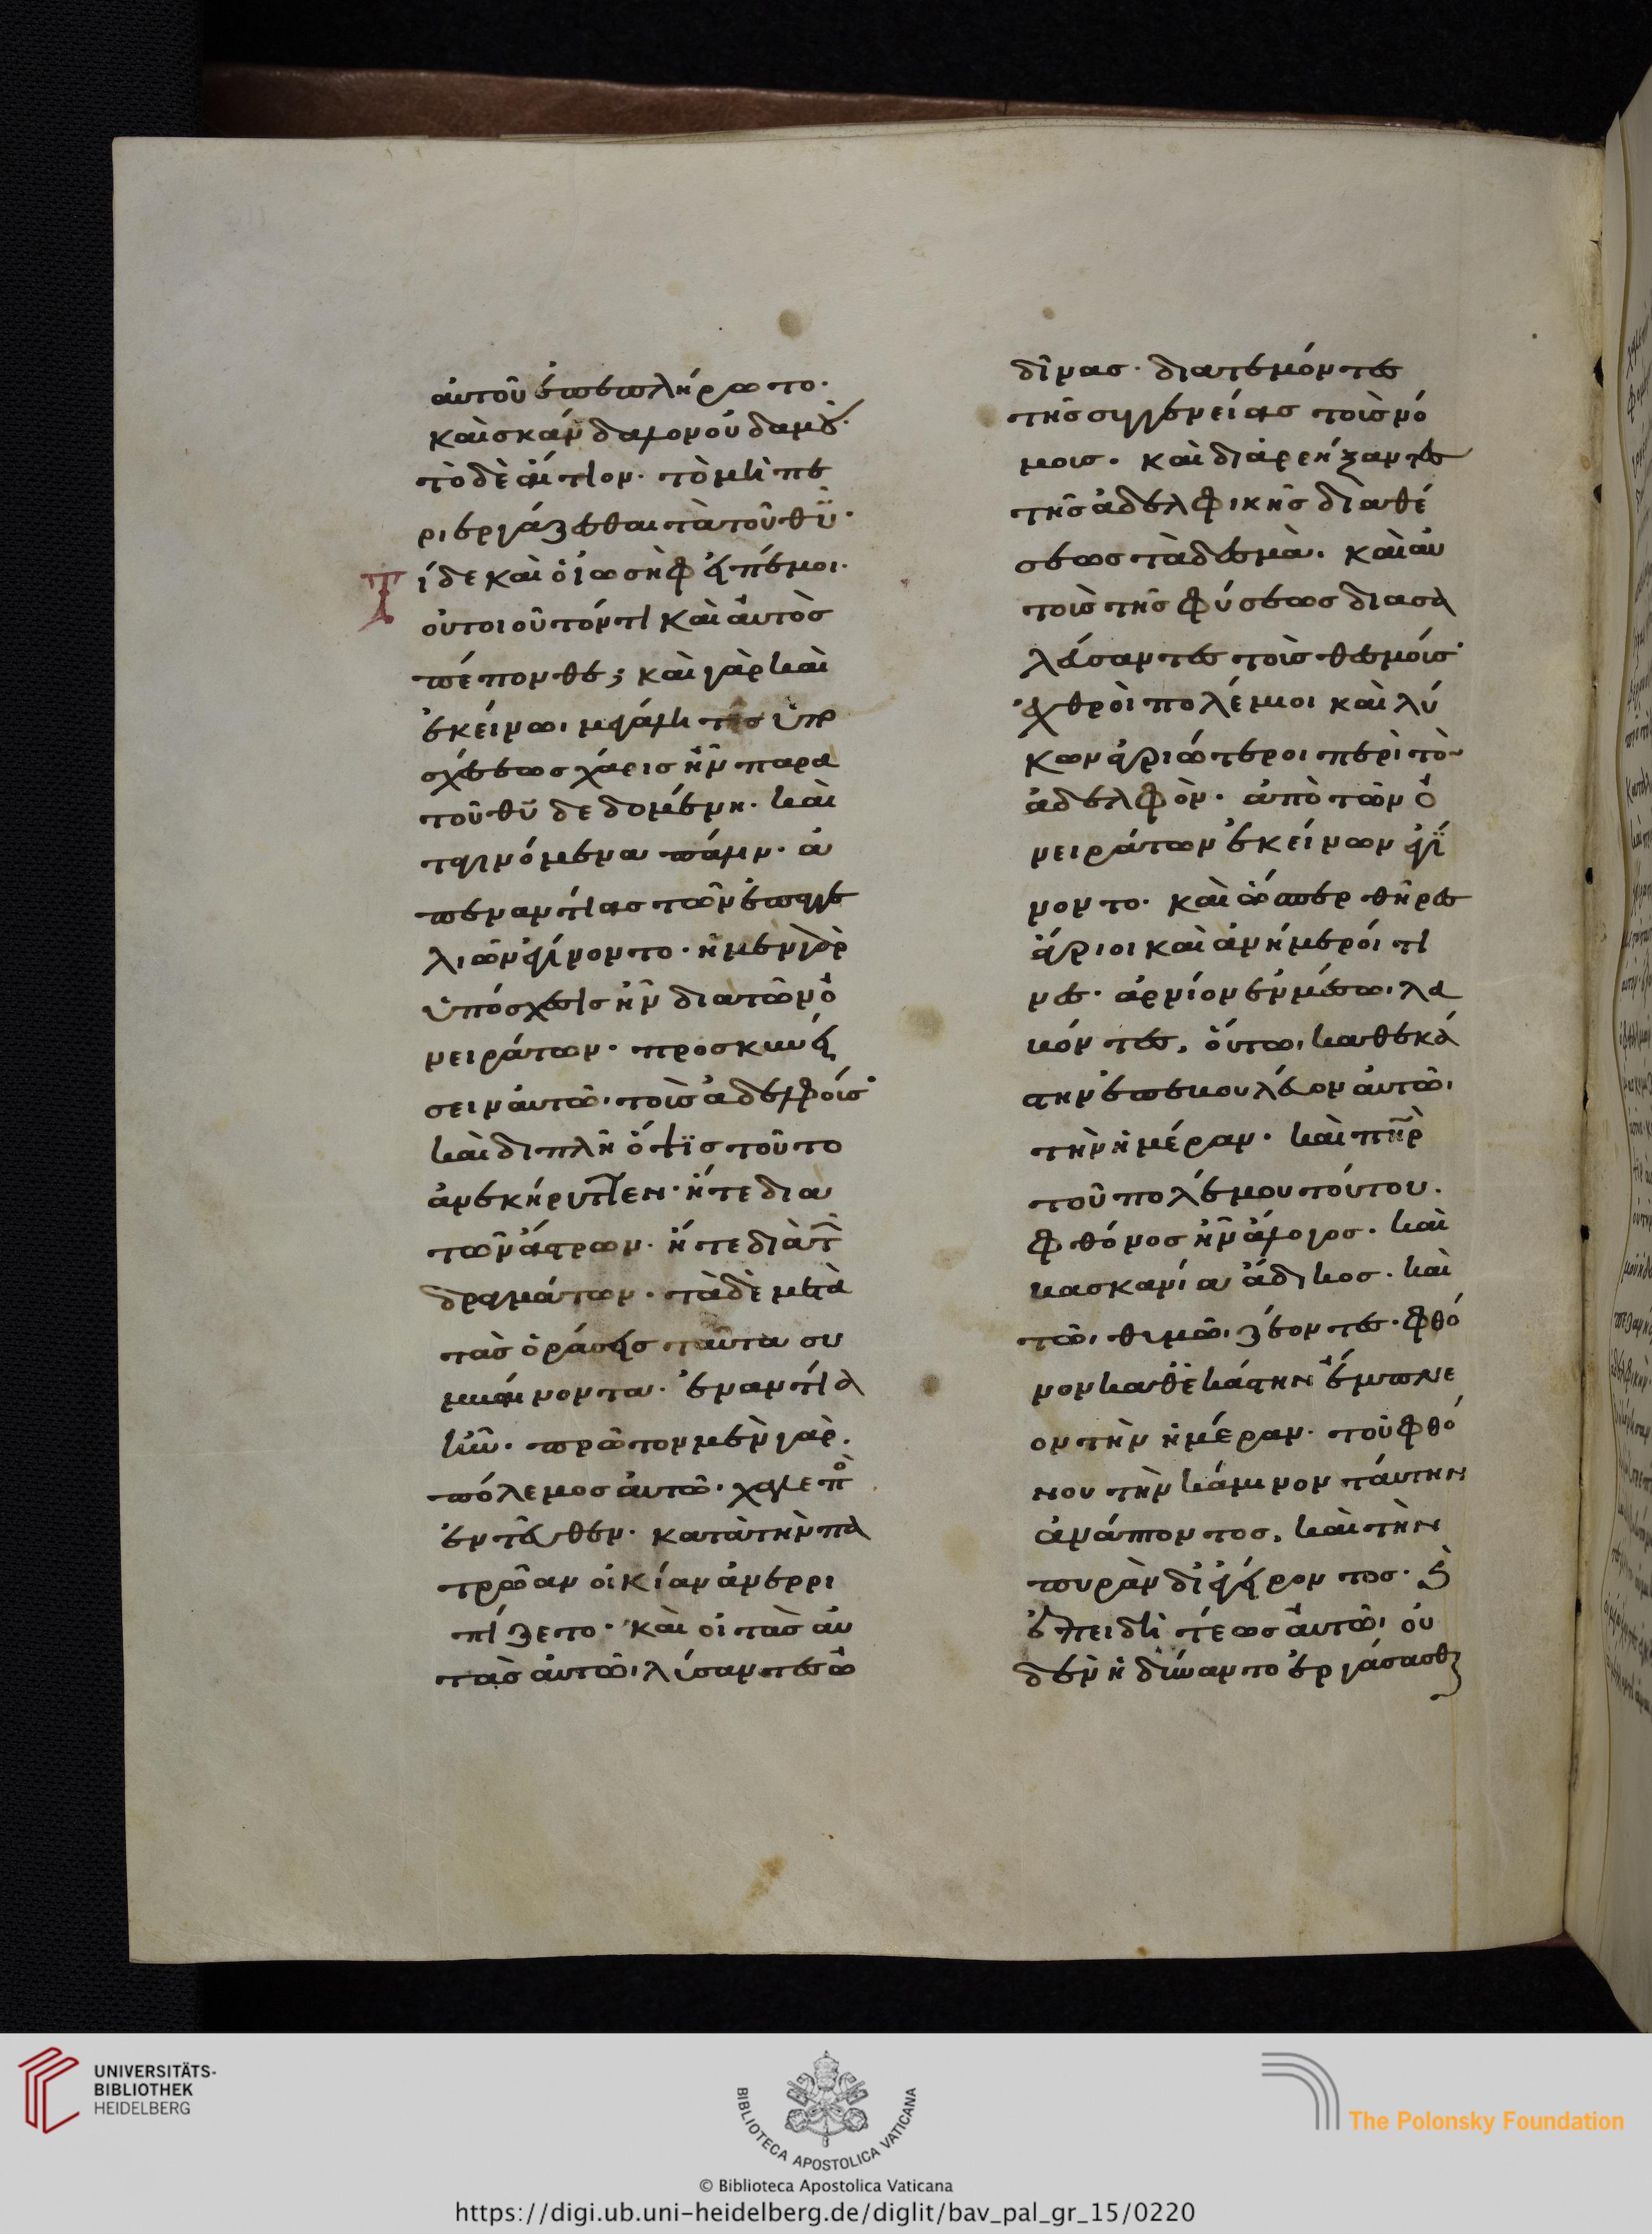 αὐτοῦ ἐπεπλήρωτο·
καὶ σκάνδαλον οὐδαμοῦ·
τὸ δὲ αἴτιον· τὸ μὴ πε
ριεργάζεσθαι τὰ τοῦ θῦ·
Τί δε καὶ ὁ ἰωσὴφ εἰπέ μοι·
οὐ τοιοῦτόν τι καὶ αὐτὸς
πέπονθε; καὶ γὰρ καὶ
ἐκείνωι μεγάλη τῆς ὑπο
σχέσεως χάρις ἦν παρα
τοῦ θῦ δεδομένη· καὶ
τὰ γινόμενα πάλιν· ἀ
πεναντίας τῶν ἐπαγγε
λιῶν ἐγίνοντο· ἡ μὲν γὰρ
ὑπόσχεσις ἦν δια τῶν ὀ
νειράτων· προσκυνή
σειν αὐτῶι τοὺς ἀδελφούς·
καὶ διπλῆ ὄψις τοῦτο
ἀνεκήρυττεν· ἥ τε δια
τῶν ἄστρων· ἥ τε διὰ τῶν
δραγμάτων· τὰ δὲ μετὰ
τὰς ὁράσεις ταύτα συ
μβαίνοντα· ἐναντία
ἦν· πρῶτον μὲν γὰρ.
πόλεμος αὐτῶ· χαλεπὸς
ἐντεῦθεν· κατὰ τὴν πα
τρῶαν οἰκίαν ἀνερρι
πίζετο· καὶ οἱ τὰς αὐ
τὰς αὐτῶι λύσαντες ὠ
δῖνας· διατεμόντες
τῆς συγγενείας τοὺς νό
μους· καὶ διαρρήξαντες
τῆς ἀδελφικῆς διαθέ
σεως τὰ δεσμὰ· καὶ αὐ
τοὺς τῆς φύσεως διασα
λεύσαντες τοὺς θεσμούς·
ἐχθροὶ πολέμιοι καὶ λύ
κων ἀγριώτεροι περὶ τὸν
ἀδελφὸν· ἀπὸ τῶν ὀ
νειράτων ἐκείνων ἐγί
νοντο· καὶ ὥσπερ θῆρες
ἄγριοι καὶ ἀνήμεροί τι
νες· ἀρνίον ἐν μέσωι λα
βόντες, οὕτωι καθεκά
στην ἐπεβούλευον αὐτῶι
τὴν ἡμέραν· καὶ πῆρ
τοῦ πολέμου τούτου·
φθόνος ἦν ἄλογος· καὶ
βασκανία ἄδικος· καὶ
τῶι θυμῶι ζέοντες· φθό
νον καθ' ἑκάστην ἔμπνε
ον τὴν ἡμέραν· τοῦ φθό
νου τὴν κάμινον ταύτην
ἀνάπτοντος, καὶ τὴν
πυρὰν διεγείροντος· καὶ
ἐπειδὴ τέως αὐτῶι οὐ
δὲν ἠδύναντο ἐργάσασθαι
UNIVERSITÄTS-
BIBLIOTHEK
HEIDELBERG
BIBLIOTECA APOSTOLICA VATICANA
The Polonsky Foundation
© Biblioteca Apostolica Vaticana
https://digi.ub.uni-heidelberg.de/diglit/bav_pal_gr_15/0220